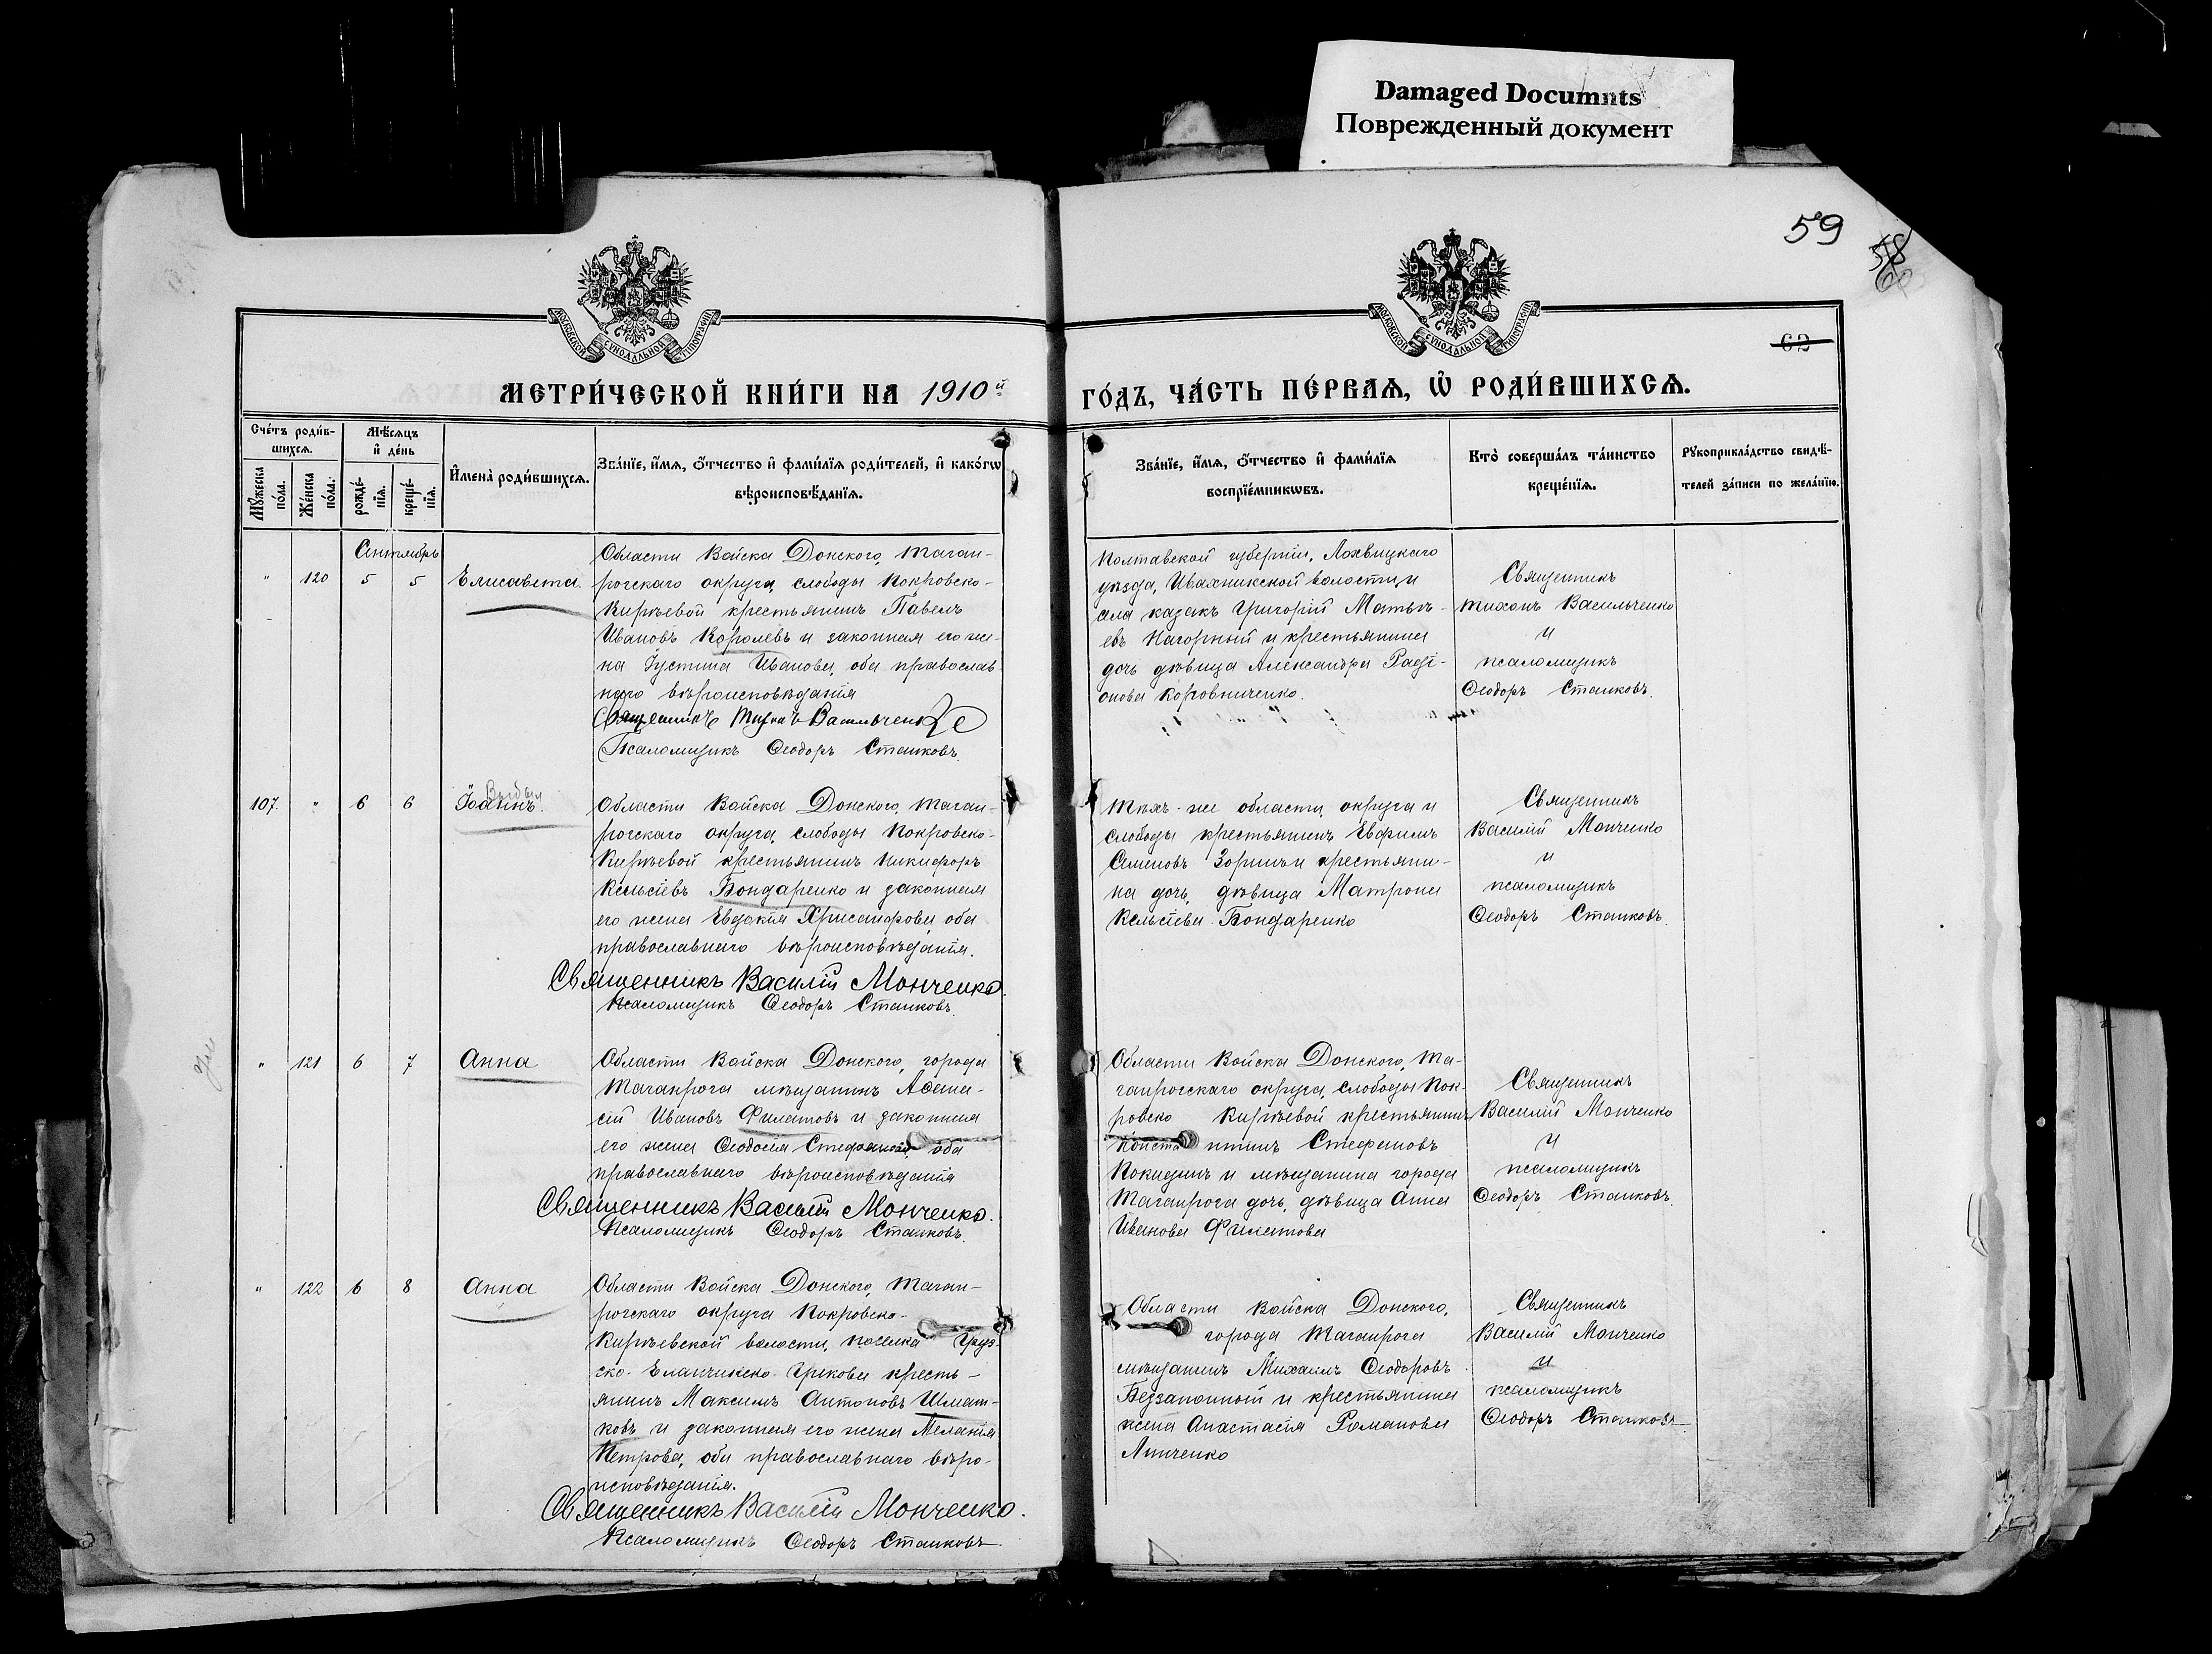 Damaged Documnts
Поврежденный документ
59
58
62
МОСКОВСКОЙ СѴНОДАЛЬНОЙ ТИПОГРАФІИ
МОСКОВСКОЙ СѴНОДАЛЬНОЙ ТИПОГРАФІИ
МЕТРИ́ЧЕСКОЙ КНИ́ГИ НА 1910й
ГО́ДЪ, ЧА́СТЬ ПЕ́РВАѦ, Ѡ҆ РОДИ́ВШИХСѦ.
Сче́тъ роди́в-
шихсѧ.
Мꙋ́жеска по́ла.
Же́нска по́ла.
Мѣ́сѧцъ
и҆ де́нь
рожде́-нїѧ.
креще́-нїѧ.
И҆мена̀ роди́вшихсѧ.
Зва́нїе, и҆́мѧ, ѻ҆́тчество и҆ фами́лїѧ роди́телей, и҆ како́гѡ
вѣроисповѣ́данїѧ.
Зва́нїе, и҆́мѧ, ѻ҆́тчество и҆ фами́лїѧ
воспрїе́мникѡвъ.
Кто̀ соверша́лъ та́инство
креще́нїѧ.
Рꙋкоприкла́дство свидѣ́-
телей за́писи по жела́нїю.
Сентябрь
" 120 5 5 Елисавета
Области Войска Донского, Таган-
рогскаго округа, слободы Покровско-
Кирѣевой крестьянинъ Павелъ
Ивановъ Королевъ и законная его же-
на Іустина Иванова, оба православ
наго вѣроисповѣданія
Священникъ Тихонъ Васильченко
Псаломщикъ Ѳеодоръ Станковъ.
Полтавской губерніи, Лохвицкаго
уѣзда, Ивахникской волости и
села казакъ Григорій Матвѣ-
евъ Нагорный и крестьянина
дочь дѣвица Александра Раді-
онова Коровниченко.
Священникъ
Тихонъ Васильченко
и
псаломщикъ
Ѳеодоръ Станковъ.
107. " 6 6 Іоаннъ.
Области Войска Донского, Таган-
рогскаго округа, слободы Покровско-
Кирѣевой крестьянинъ Никифоръ
Кельсіевъ Бондаренко и законная
его жена Евдокія Хрисанфова, оба
православнаго вѣроисповѣданія.
Священникъ Василій Монченко.
Псаломщикъ Ѳеодоръ Станковъ.
Тѣхъ-же области, округа и
слободы крестьянинъ Евфимъ
Семеновъ Зоринъ и крестьяни-
на дочь, дѣвица Матрона
Кельсіева Бондаренко
Священникъ
Василій Монченко
и
псаломщикъ
Ѳеодоръ Станковъ.
" 121 6 7 Анна
Области Войска Донского, города
Таганрога мѣщанинъ Аѳана-
сій Ивановъ Филатовъ и законная
его жена Ѳеодосія Стефанова, оба
православнаго вѣроисповѣданія
Священникъ Василій Монченко.
Псаломщикъ Ѳеодоръ Станковъ.
Области Войска Донского, Та-
ганрогскаго округа, слободы Пок-
ровско Кирѣевой крестьянинъ
Конста нтинъ Стефановъ
Покидинъ и мѣщанина города
Таганрога дочь, дѣвица Анна
Иванова Филатова
Священникъ
Василій Монченко
и
псаломщикъ
Ѳеодоръ Станковъ.
" 122 6 8 Анна
Области Войска Донского, Таган-
рогскаго округа Покровско-
Кирѣевской волости, поселка Груз-
ско-Еланчикско-Грекова кресть-
янинъ Максимъ Антоновъ Шмат-
ковъ и законная его жена Меланія
Петрова, оба православнаго вѣро-
исповѣданія.
Священникъ Василій Монченко.
Псаломщикъ Ѳеодоръ Станковъ.
Области Войска Донского,
города Таганрога
мѣщанинъ Михаилъ Ѳеодоровъ
Беззапонный и крестьянина
жена Анастасія Романова
Линченко
Священникъ
Василій Монченко
и
псаломщикъ
Ѳеодоръ Станковъ